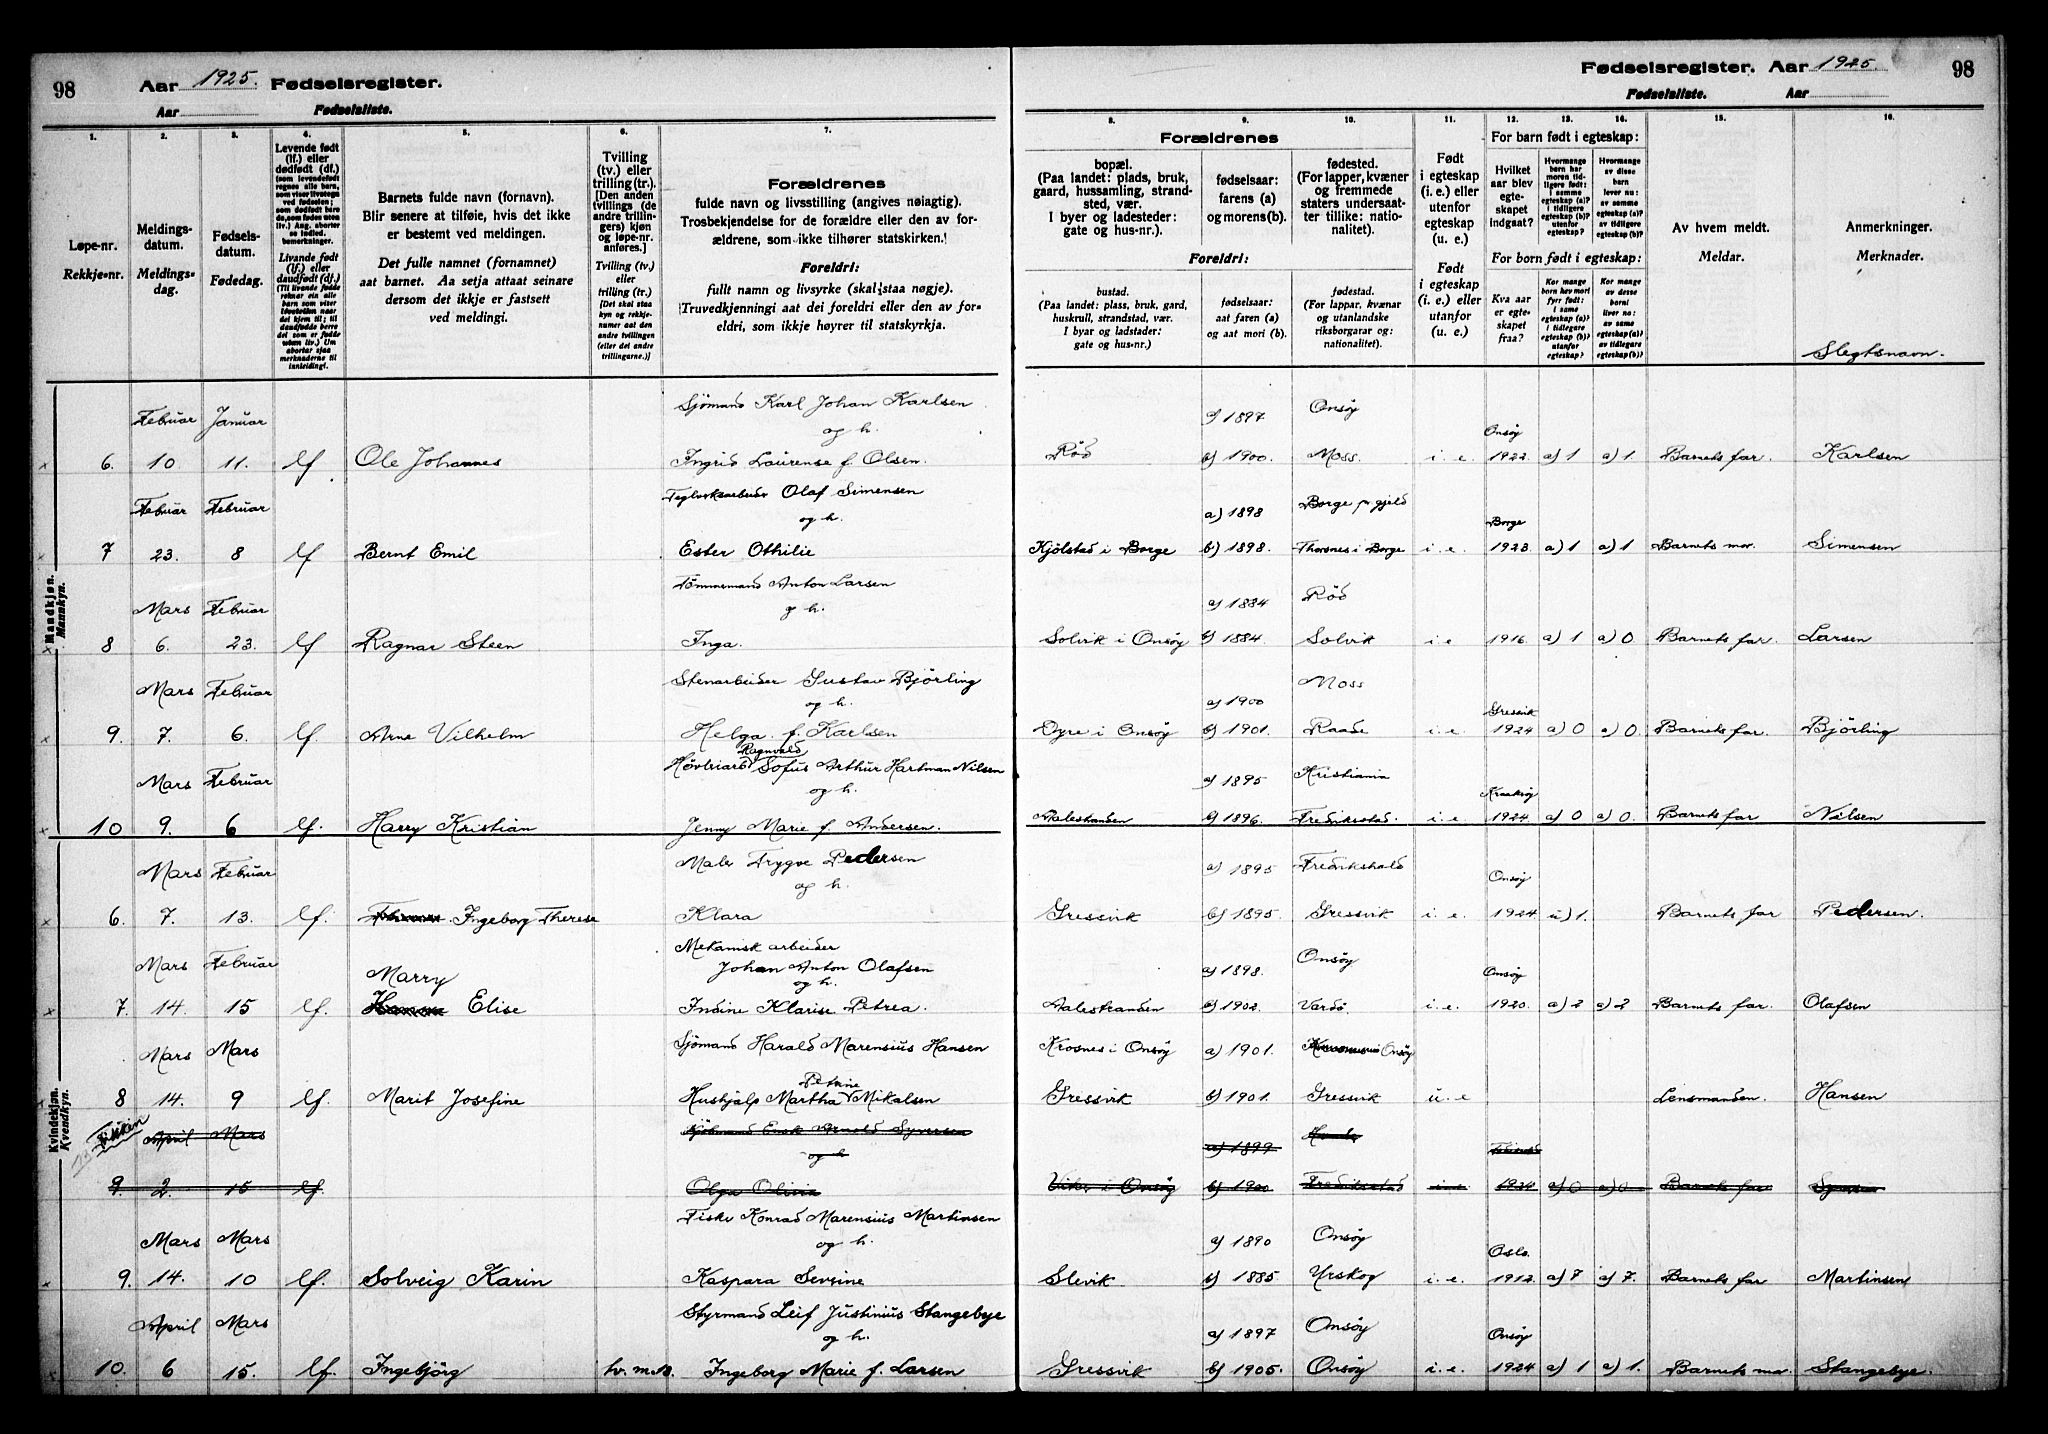 98
Aar 1925. Fødselsregister.
Aar Fødselsliste.
Fødselsregister. Aar 1925.
98
Fødselsliste. Aar
1. 2. 3. 4. 5. 6. 7.
Løpe-nr.
Rekkje-nr.
Meldings-
datum.
Meldings-
dag.
Fødsels-
datum.
Fødedag.
Levende født
(lf.) eller
dødfødt (df.)
Livande født
(lf.) eller
daudfødt (df.)
Barnets fulde navn (fornavn).
Blir senere at tilføie, hvis det ikke
er bestemt ved meldingen.
Det fulle namnet (fornamnet)
aat barnet. Aa setja attaat seinare
dersom det ikkje er fastsett
ved meldingi.
Tvilling
(tv.) eller
trilling (tr.).
[Den anden
tvillings (de
andre trillin-
gers) kjøn
og løpe-nr.
anføres.]
Tvilling (tv.)
eller
trilling (tr.)
[Det skal staa
kyn og rekkje-
numer aat den
andre tvillingen
(eller dei andre
trillingarne.)]
Forældrenes
fulde navn og livsstilling (angives nøiagtig).
Trosbekjendelse for de forældre eller den av for-
ældrene, som ikke tilhører statskirken.
Foreldri:
fullt namn og livsyrke (skal staa nøgje).
Truvedkjenningi aat dei foreldri eller den av for-
eldri, som ikkje høyrer til statskyrkja.
8. 9. 10. 11. 12. 13. 14. 15. 16.
Forældrenes
bopæl.
(Paa landet: plads, bruk,
gaard, hussamling, strand-
sted, vær.
I byer og ladesteder:
gate og hus-nr.).
fødselsaar:
farens (a)
og morens (b).
fødested.
(For lapper, kvæner
og fremmede
staters undersaat-
ter tillike: natio-
nalitet).
Foreldri:
bustad.
(Paa landet: plass, bruk, gard,
huskrull, strandstad, vær.
I byar og ladstader:
gate og hus-nr.)
fødselsaar:
aat faren (a)
og aat mori (b).
fødestad.
(For lappar, kvænar
og utanlandske
riksborgarar og:
nationalitet).
Født
i egteskap
(i. e.) eller
utenfor
egteskap
(u. e.)
Født
i egteskap
(i. e.) eller
utanfor
(u. e.)
For barn født i egteskap:
Hvilket
aar blev
egte-
skapet
indgaat?
For born fødde i egteskap:
Kva aar
er egte-
skapet
fraa?
Av hvem meldt.
Meldar.
Anmerkninger.
Merknader.
Slegtsnavn.
Mandkjøn.
Mannkyn.
Februar Januar Sjömand Karl Johan Karlsen a) 1897 Onsöy
og h. Onsöy
6. 10. 11. lf Ole Johannes Ingrid Laurense f. Olsen. Röd b) 1900. Moss. i. e. 1922. a) 1 a) 1. Barnets far. Karlsen
Februar Februar Teglverksarbeider Olaf Simensen a) 1898 Borge pr gjeld
og h. Borge
7 23. 8 lf Bernt Emil Ester Othilie Kjölstad i Borge b) 1898. Thorsnes i Borge i. e. 1923. a) 1 a) 1 Barnets mor. Simensen
Mars Februar Tömmermand Anton Larsen a) 1884 Röd
og h.
8 6. 23. lf Ragnar Steen Inga. Solvik i Onsöy b) 1884. Solvik i. e 1916. a) 1 a) 0 Barnets far. Larsen
Mars Februar Stenarbeider Gustav Björling a) 1900 Moss
og h. Gressvik
9. 7. 6. lf. Arne Vilhelm Helga. f. Karlsen Dyre i Onsöy b) 1901. Raade i. e. 1924 a) 0 a) 0. Barnets far. Björling
Ragnvald
Mars Februar Sofus Arthur Hartman Nilsen a) 1895 Kristiania
og h. Kraakeröy
10 9. 6 lf. Harry Kristian Jenny Marie f. Andersen. Aalestranden b) 1896. Fredriksstad. i. e. 1924. a) 0 a) 0. Barnets far Nilsen
Kvindekjøn.
Kvendkyn.
Mars Februar Maler Trygve Pedersen a) 1895 Fredrikshald
og h. Onsöy
6. 7. 13. lf. Ingeborg Therese Klara Gressvik b) 1895. Gressvik i. e. 1924 1. Barnets far Pedersen.
Mekanisk arbeider
Mars Februar Marry Johan Anton Olafsen a) 1898. Onsöy
og h. Onsöy
7. 14. 15 lf. Elise Indine Klarise Petrea. Aalestranden b) 1902. Vardö. i. e. 1920. a) 2 a) 2 Barnets far. Olafsen
Mars Mars Sjömand Harald Marensius Hansen Krosnes i Onsöy a) 1901. Onsöy
Petrine
8 14. 9 lf. Marit Josefine Hushjälp Martha Mikalsen Gressvik b) 1901. Gressvik u. e Lensmanden. Hansen
April Mars Arnold Syversen
a) 1899
og h
9. 2. 15 lf. Olga Olivia Viker i Onsöy b) 1900 Fredriksstad i. e. 1924 a) 0 a) 0 Barnets far
Fisker Konrad Marensius Martinsen
Mars Mars og h. a) 1890 Onsöy Oslo.
9. 14. 10 lf. Solveig Karin Kaspara Sevrine Slevik b) 1885 Urskog i. e. 1912. a) 7 a) 7. Barnets far Martinsen
April Mars Styrmand Leif Justinius Stangebye a) 1897 Onsöy
og h. Onsöy
10. 6 15. lf. Ingebjörg tv. m. Ingeborg Marie f. Larsen Gressvik b) 1905. Onsöy i. e. 1924 a) 1 a) 1. Barnets Stangebye.